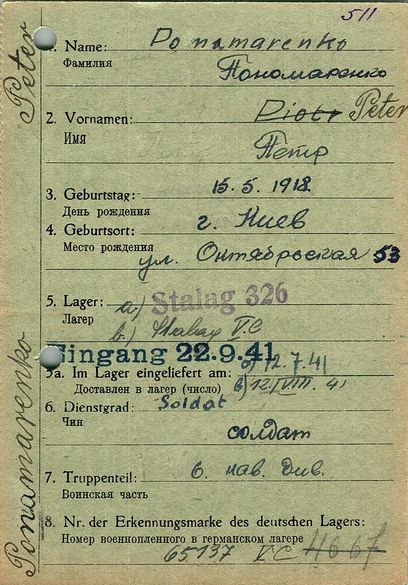 511
1. Name: Ponamarenko
Фамилия Пономаренко
2. Vornamen: Piotr Peter
Имя Петр
3. Geburtstag: 15. 5. 1918
День рождения
4. Geburtsort: г. Киев
Место рождения
ул. Октябрьская 53
5. Lager: a.) Stalag 326
Лагер b.) Stalag V.C
Eingang 22.9.41
5a. Im Lager eingeliefert am: a) 12.7.41
Доставлен в лагер (число) в) 12.VIII. 41
6. Dienstgrad: Soldat
Чин солдат
7. Truppenteil: 6. кав. див.
Воинская часть
8. Nr. der Erkennungsmarke des deutschen Lagers:
Номер военнопленного в германском лагере
65137 VC 4067
Ponamarenko Peter